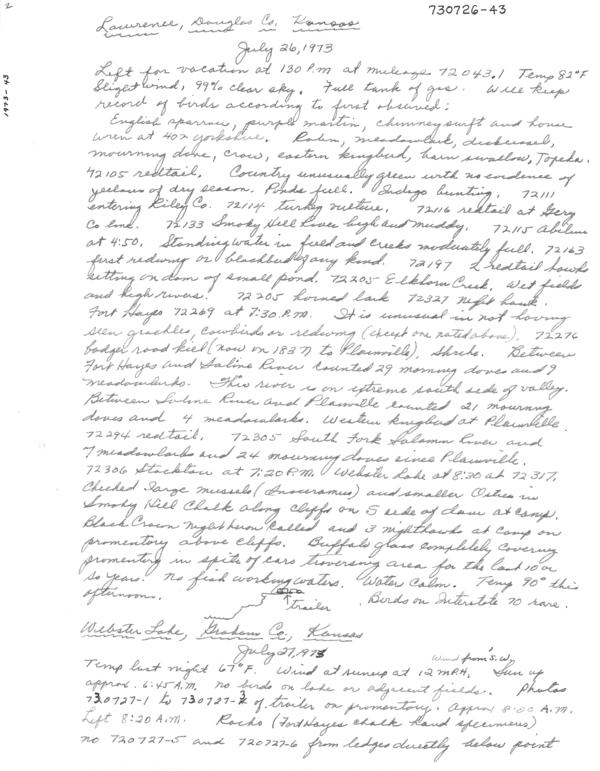 2
730726-43
1973-43
Lawrence, Douglas Co, Kansas
July 26, 1973
Left for vacation at 130 P.M at mileage 72043.1 Temp 82°F
Slight wind, 99% clear sky. Full tank of gas. Will keep
record of birds according to first observed:
English sparrow, purple martin, chimney swift and house
wren at 402 Yorkshire. Robin, meadowlark, dickcissel,
mourning dove, crow, eastern kingbird, barn swallow, Topeka.
72105 redtail. Country unusually green with no evidence of
yellows of dry season. Ponds full. Indigo bunting. 72111
entering Riley Co. 72114 turkey vulture. 72116 redtail at Gery
Co line. 72133 Smoky Hill River high and muddy. 72115 Abilene
at 4:50. Standing water in field and creeks moderately full. 72163
first redwing or blackbird of any kind. 72197 2 redtail hawks
sitting on dam of small pond. 72205 Elkhorn Creek. Wet fields
and high rivers. 72205 horned lark 72327 night hawk.
Fort Hayes 72269 at 7:30 P.M. It is unusual in not having
seen grackles, cowbirds or redwing (except one noted above). 72276
badger road kill (now on 183 N to Plainville), shrike. Between
Fort Hayes and Saline River counted 29 morning doves and 9
meadowlarks. This river is on extreme south side of valley.
Between Saline River and Plainville counted 21 mourning
doves and 4 meadowlarks. Western kingbird at Plainville.
72294 redtail. 72305 South Fork Solomn River and
7 meadowlarks and 24 mourning doves since Plainville.
72306 Stockton at 7:20 P.M. Webster Lake at 8:30 at 72317.
Checked large mussels (Inoceramus) and smaller in
Smoky Hill Chalk along cliffs on S side of dam at camp.
Black Crown Night heron called and 3 nighthawks at camp on
promontory above cliffs. Buffalo grass completely covering
promontory in spite of cars traversing area for the last 10 or
so years. No fish working waters. Water calm. Temp 90° this
afternoon. Birds on Interstate 70 rare.
trailer
Webster Lake, Graham Co., Kansas
July 27, 1973
Wind from S.W.
Temp last night 67°F. Wind at sunup at 12 MPH. Sun up
approx. 6:45 A.M. no birds on lake or adjacent fields. Photos
730727-1 to 730727-3 of trailer on promontory. Approx 8:00 A.M.
Left 8:20 A.M. Rocks (Fort Hayes chalk hand specimens)
no 720727-5 and 720727-6 from ledges directly below point